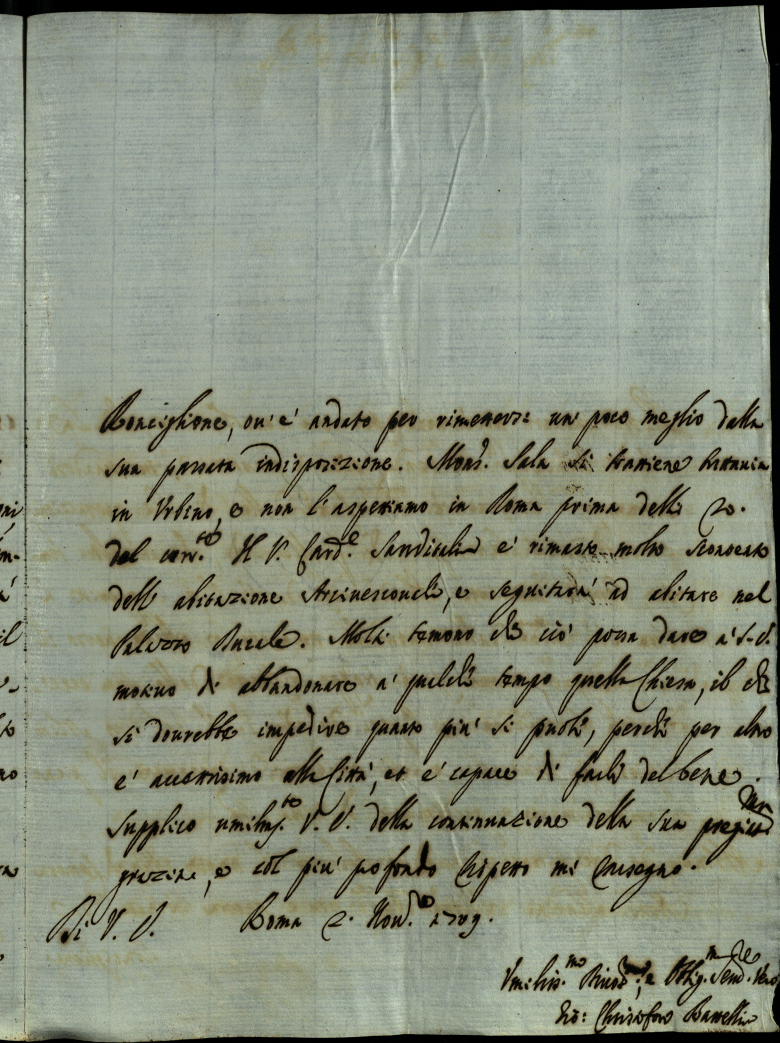 Ronciglione, ou' e' andato per rimettersi un poco meglio dalla
sua passata indisposizione. Mons.r Sala si trattiene tuttauia
in Vrbino, e non l'aspettiamo in Roma prima delli 20.
del corr.te Il S. Card.e Sanuitale e' rimasto molto sconcertato
dell' abitazione Arciuescouale, e seguitarà ad abitare nel
Palazzo Ducale. Molti temono che ciò possa dare a' S. S.
motiuo di abbandonare a' qualche tempo quella Chiesa, il che
si dourebbe impedire quanto più si puole, perche per altro
e' accettissimo alla Città, et e' capace di farli del bene.
Supplico umilmte V. S. della continuazione della sua pregiatma
grazia, e col più profondo rispetto mi rassegno.
Di V. S. Roma 2. Nou.re 1709.
Vmiliss.mo Diuot.mo, e Oblig.mo Seru.re Vero
Gio: Christoforo Battelli